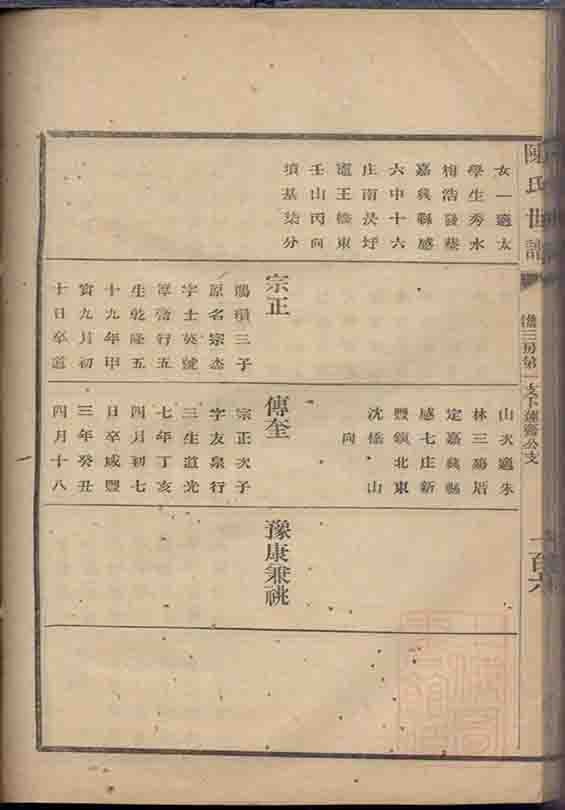 陳氏世譜
儋三房第一支下蓮齋公支
一百六
女一適太
學生秀水
梅浩發葬
嘉興縣感
六中十六
庄南㳇圩
寔王橋東
壬山丙向
墳基柒分
宗正
鵬翀三子
原名宗杰
字士英號
厚齋行五
生乾隆五
十九年甲
寅九月初
十日卒道
山次適朱
林三葬塔
定嘉興縣
感七庄新
豐鎮北東
沈橋山
向
傳奎
宗正次子
字友泉行
三生道光
七年丁亥
四月初七
日卒咸豐
三年癸丑
四月十八
豫康兼祧